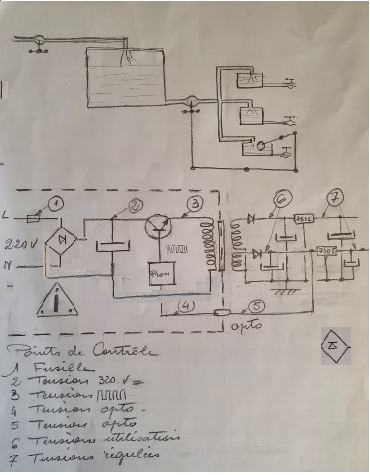 1
2
3
6
7
L
220V
N
7812
7805
4
5
opto
Points de Contrôle
1 Fusible
2 Tension 320 V =
3 Tension
4 Tension opto
5 Tension opto
6 Tensions utilisation
7 Tensions régulées